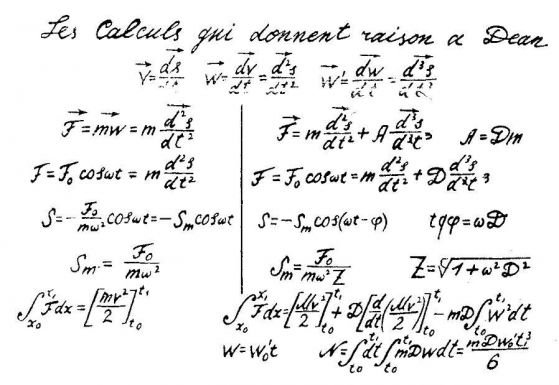 Les Calculs qui donnent raison a Dean
V⃗ = ds⃗/dt  W⃗ = dv⃗/dt = d²s⃗/dt²  W⃗' = dw⃗/dt = d³s⃗/dt³
F⃗ = mw⃗ = m d²s⃗/dt²
F = F₀ cosωt = m d²s/dt²
S = -F₀/mω² cosωt = -Sₘ cosωt
Sₘ = F₀/mω²
∫ₓ₀ˣ¹ F⃗dx = [mv²/2]ₜ₀ᵗ¹
F⃗ = m d²s⃗/dt² + A d³s⃗/d²t³  A = Dm
F = F₀ cosωt = m d²s/dt² + D d³s/d²t³
S = -Sₘ cos(ωt-φ)  tgφ = ωD
Sₘ = F₀/mω²Z  Z = √1+ω²D²
∫ₓ₀ˣ¹ F⃗dx = [Mv²/2]ₜ₀ᵗ¹ + D[d/dt(Mv²/2)]ₜ₀ᵗ¹ - mD∫ₜ₀ᵗ¹ W²dt
W = W₀'t  N = ∫ₜ₀ᵗ¹dt ∫ₜ₀ᵗ¹ mDwdt = mDw₀'t₁³/6